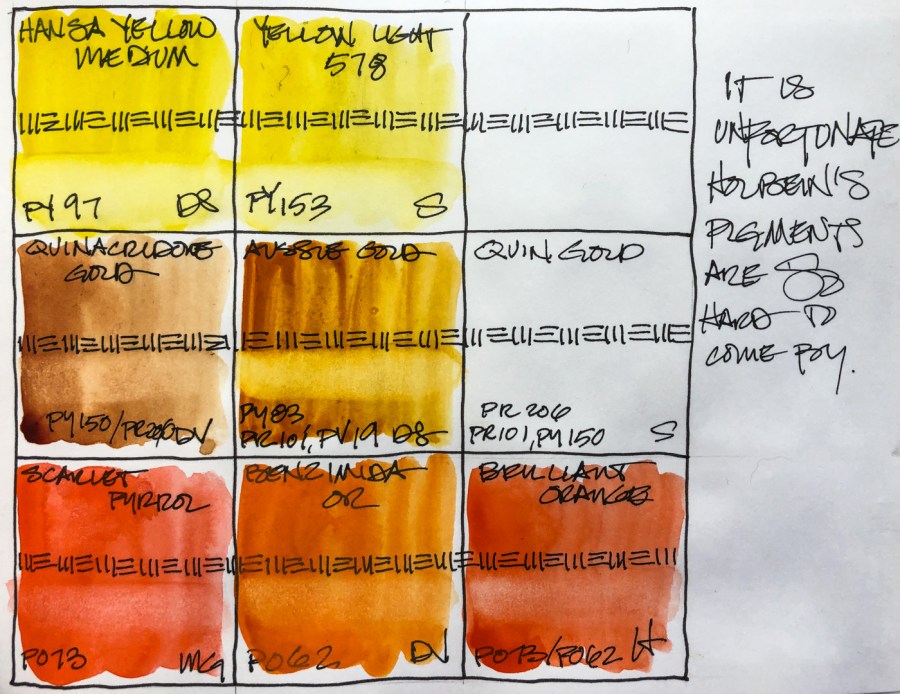 HANSA YELLOW
MEDIUM
PY97 DS
YELLOW LIGHT
578
PY153 S
QUINACRIDONE
GOLD
PY150/PR206 DV
AUSSIE GOLD
PY83
PR101, PV19 DS
QUIN GOLD
PR206
PR101, PY150 S
SCARLET
PYRROL
PO73 MG
BENZIMIDA
OR
PO62 DV
BRILLIANT
ORANGE
PO73/PO62 H
IT IS
UNFORTUNATE
HOLBEIN'S
PIGMENTS
ARE SO
HARD TO
COME BY.